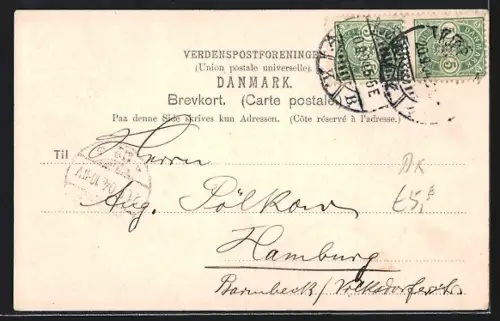 VERDENSPOSTFORENINGEN
(Union postale universelle).
DANMARK.
Brevkort. (Carte postale)
Paa denne Side skrives kun Adressen. (Côte réservé à l'adresse.)
Til Herrn
Aug. Pölkow
Hamburg
Barmbeck / Volksdorferstr.
DK
£5,
DANMARK
5
B